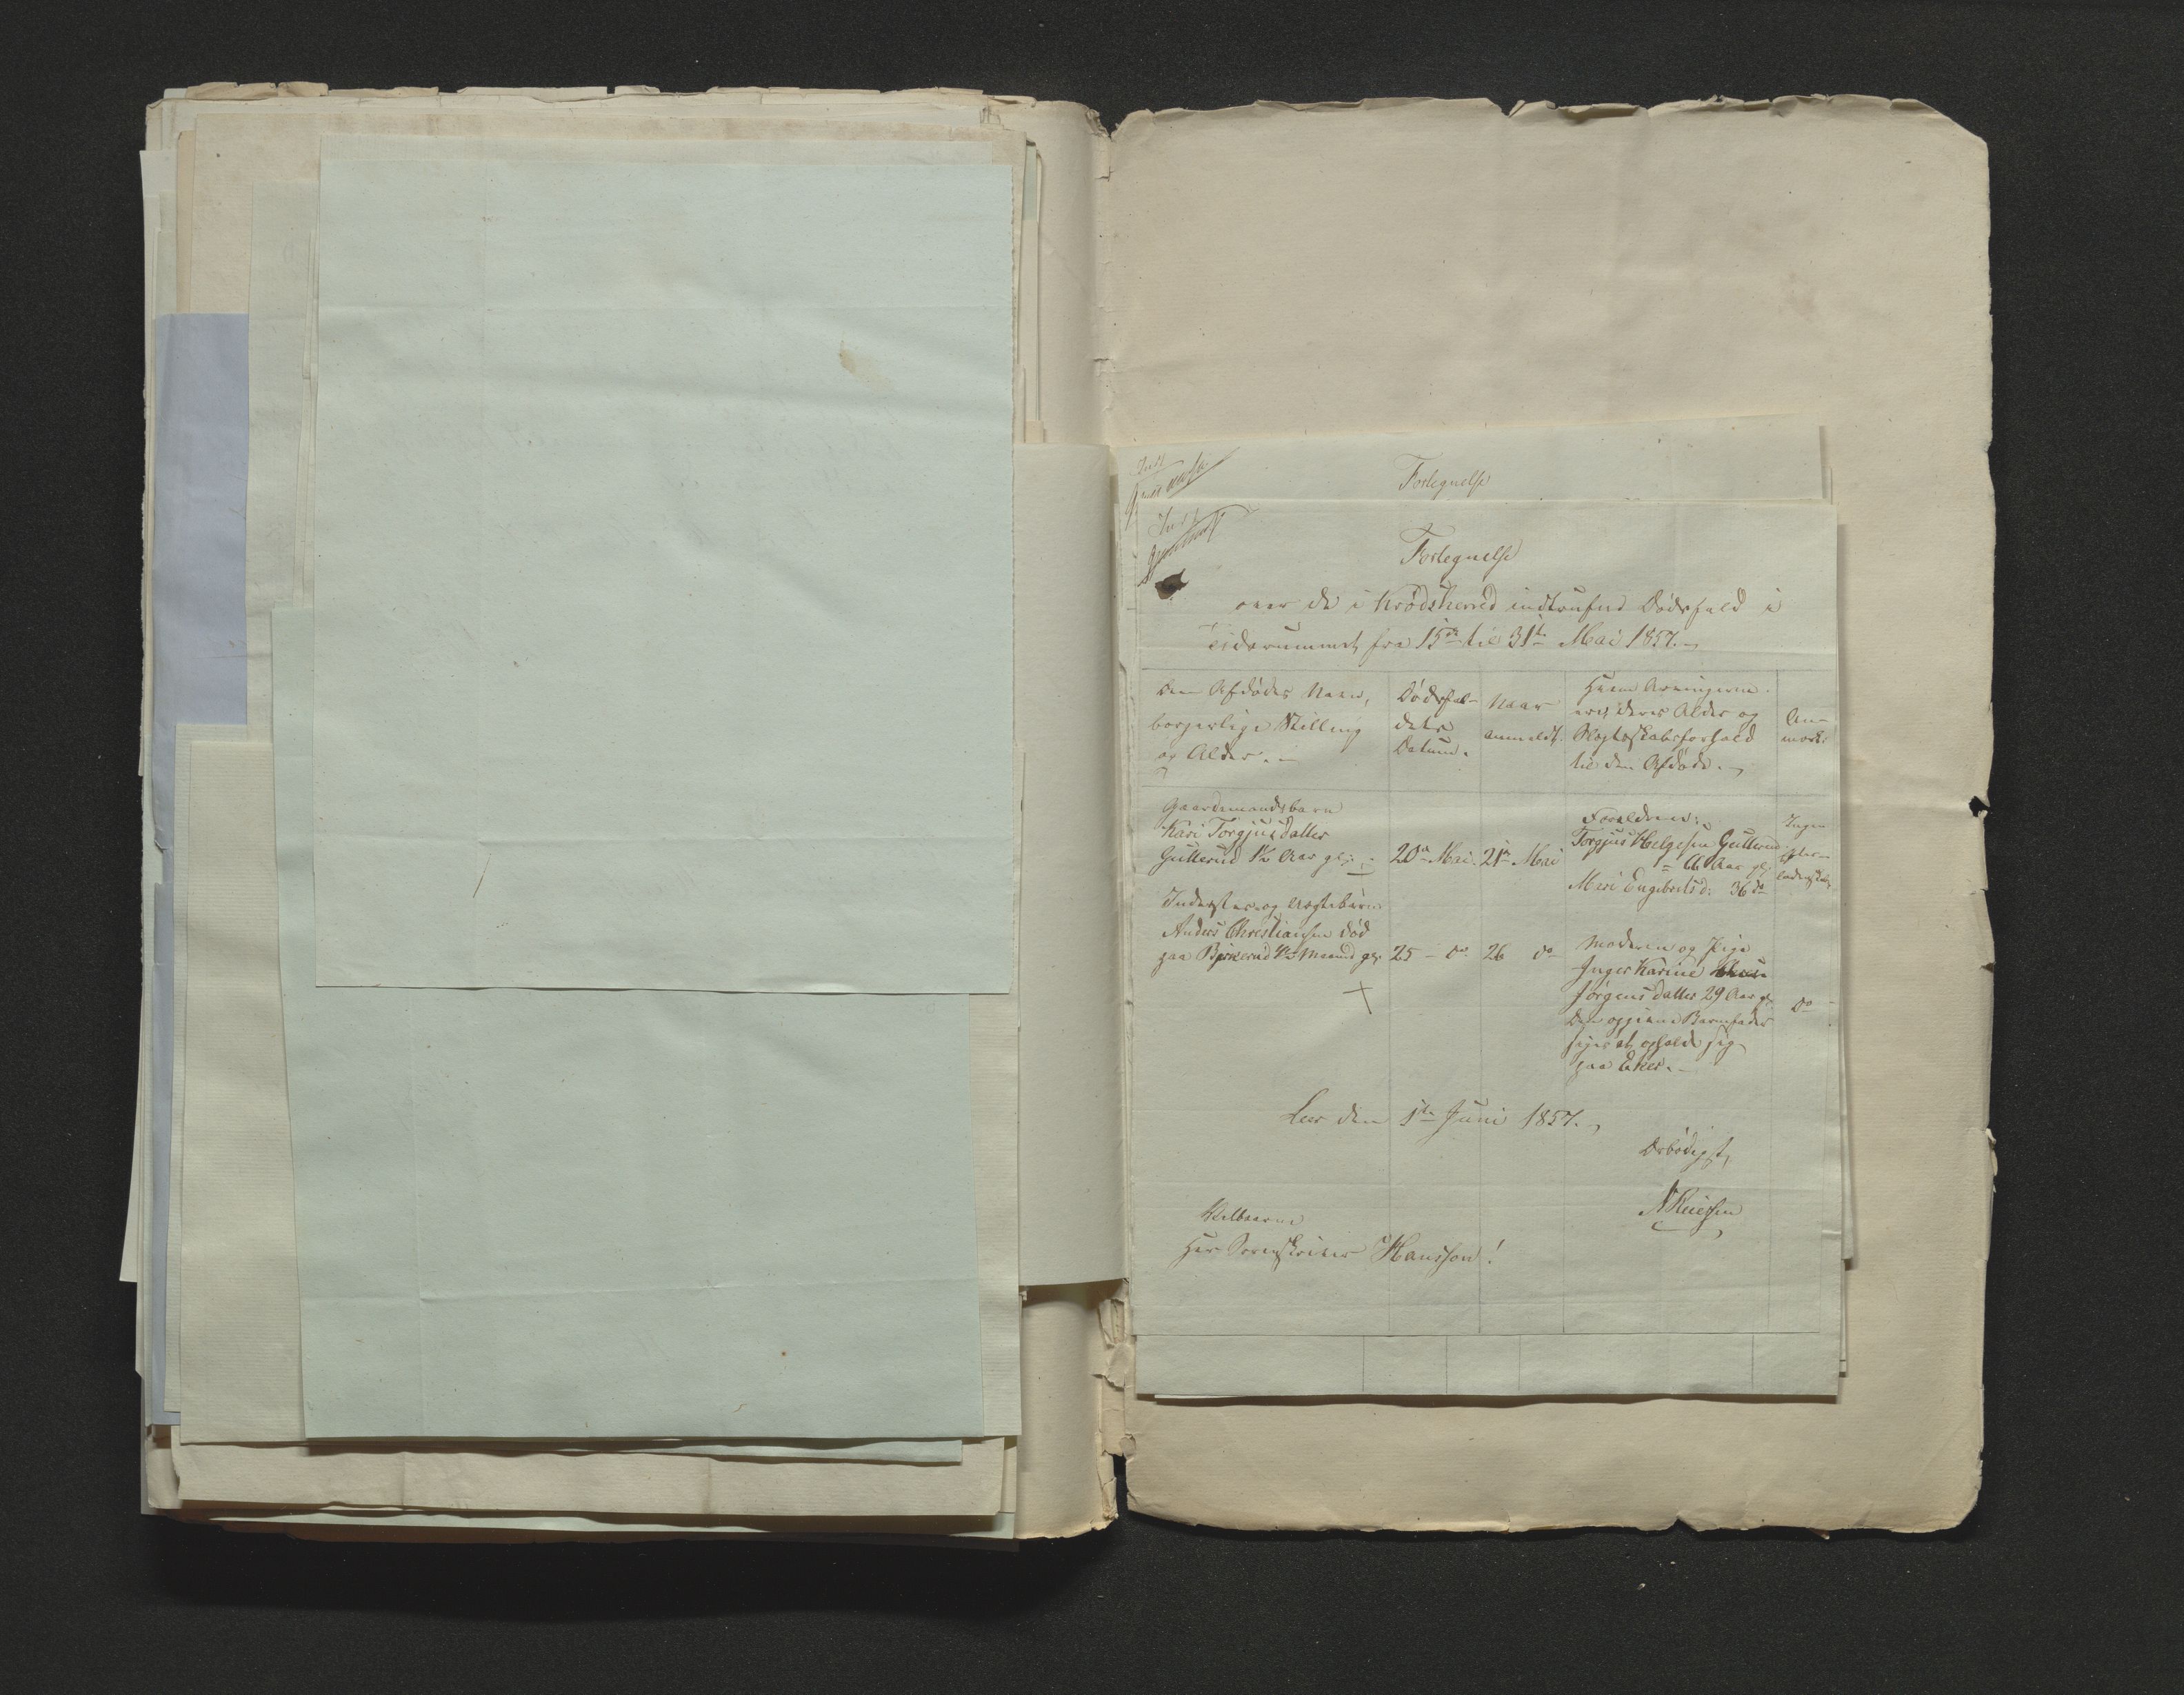 Fortegnelse
Fortegnelse
over de i Krødsherred indtrufne Dødsfald i
Tidsrummet fra 15de til 31te Mai 1857.
Den Afdødes Navn,
borgerlige Stilling
og Alder.
Dødsfal-
dets
Datum.
Naar
anmeldt.
Hvem Arvingerne
ere, deres Alder og
Slægtskabsforhold
til den Afdøde.
An-
mærk:
Gaardmandsbarn
Kari Torgjusdatter
Gulterud 1½ Aar gl:
20de Mai
21de Mai
Forældrene:
Torgjus Helgesen Gulterud
Aar gl:
Mari Engebretsd: 36 do
Ingen
Efter-
ladenskab
Inderst og Uægtebarn
Anders Christiansen død
paa Bjerkerud Maaned gl:
25 - do
26 do
Moderen og Pige
Inger Karine
Jørgensdatter 29 Aar gl
Den opgivne Barnefader
siges at opholde sig
paa Eker.
do
Leer den 1te Juni 1857.
Ærbødigst
Velbaarne
Herr Sorenskriver Hansson!